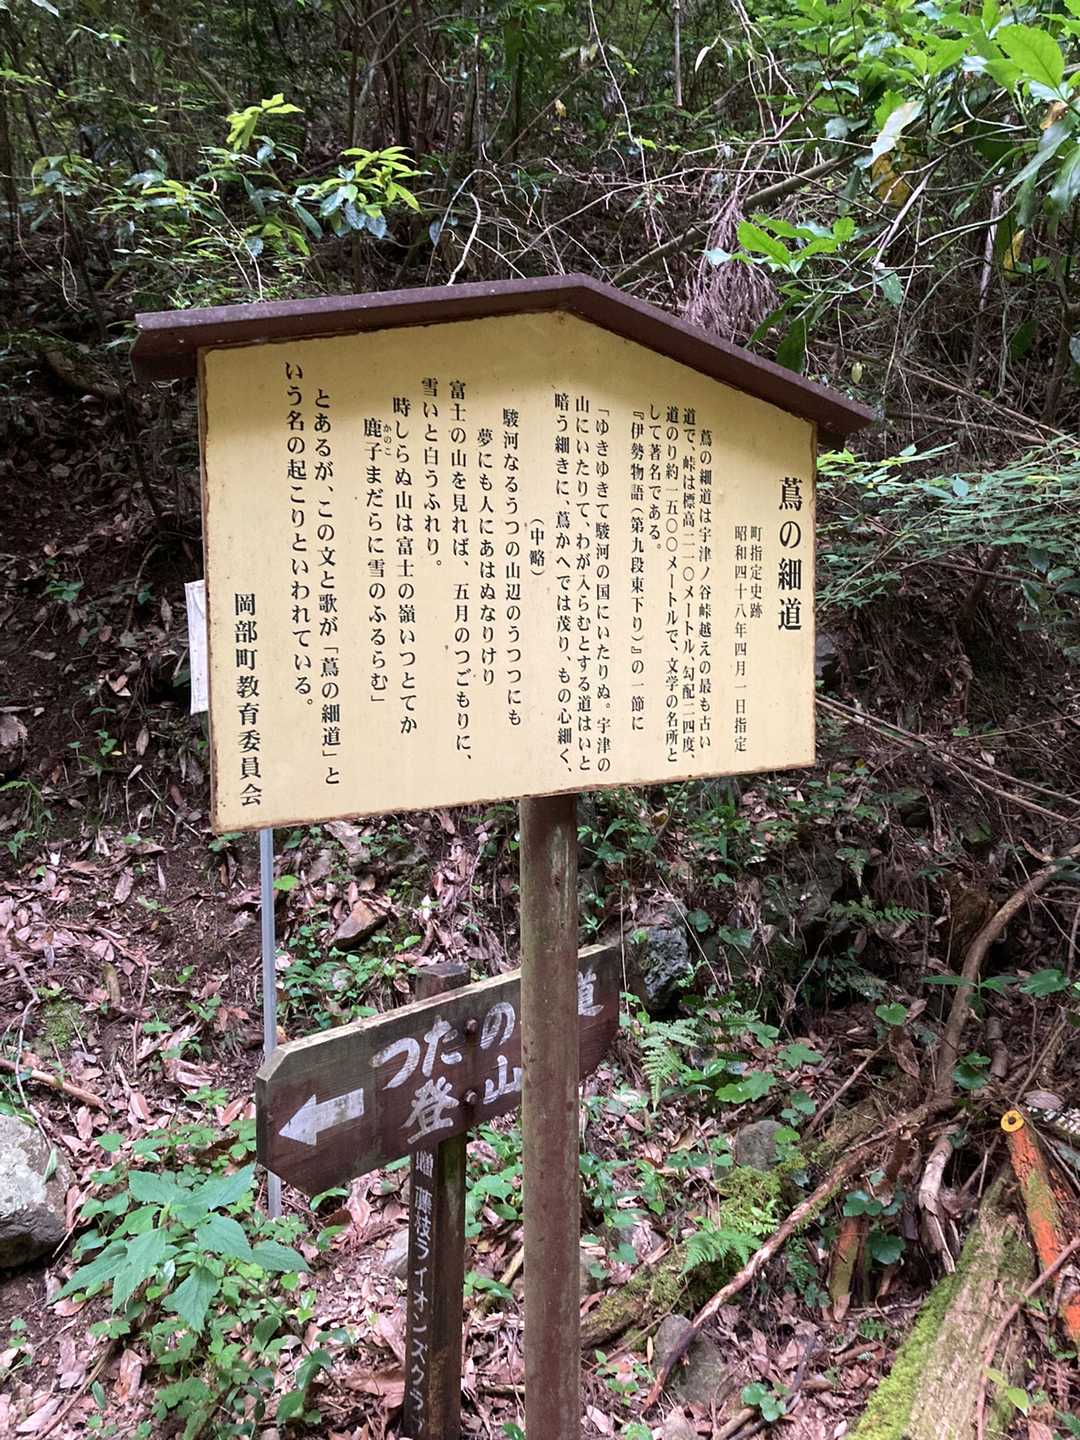 蔦の細道
町指定史跡
昭和四十八年四月一日指定
蔦の細道は宇津ノ谷峠越えの最も古い
道で、峠は標高二一〇メートル、勾配二四度、
道のり約一五〇〇メートルで、文学の名所と
して著名である。
『伊勢物語（第九段東下り）』の一節に
「ゆきゆきて駿河の国にいたりぬ。宇津の
山にいたりて、わが入らむとする道はいと
暗う細きに、蔦かへでは茂り、もの心細く、
（中略）
駿河なるうつの山辺のうつつにも
夢にも人にあはぬなりけり
富士の山を見れば、五月のつごもりに、
雪いと白うふれり。
時しらぬ山は富士の嶺いつとてか
鹿子まだらに雪のふるらむ」
かのこ
とあるが、この文と歌が「蔦の細道」と
いう名の起こりといわれている。
岡部町教育委員会
つたの 道
登山
贈 藤枝ライオンズクラブ